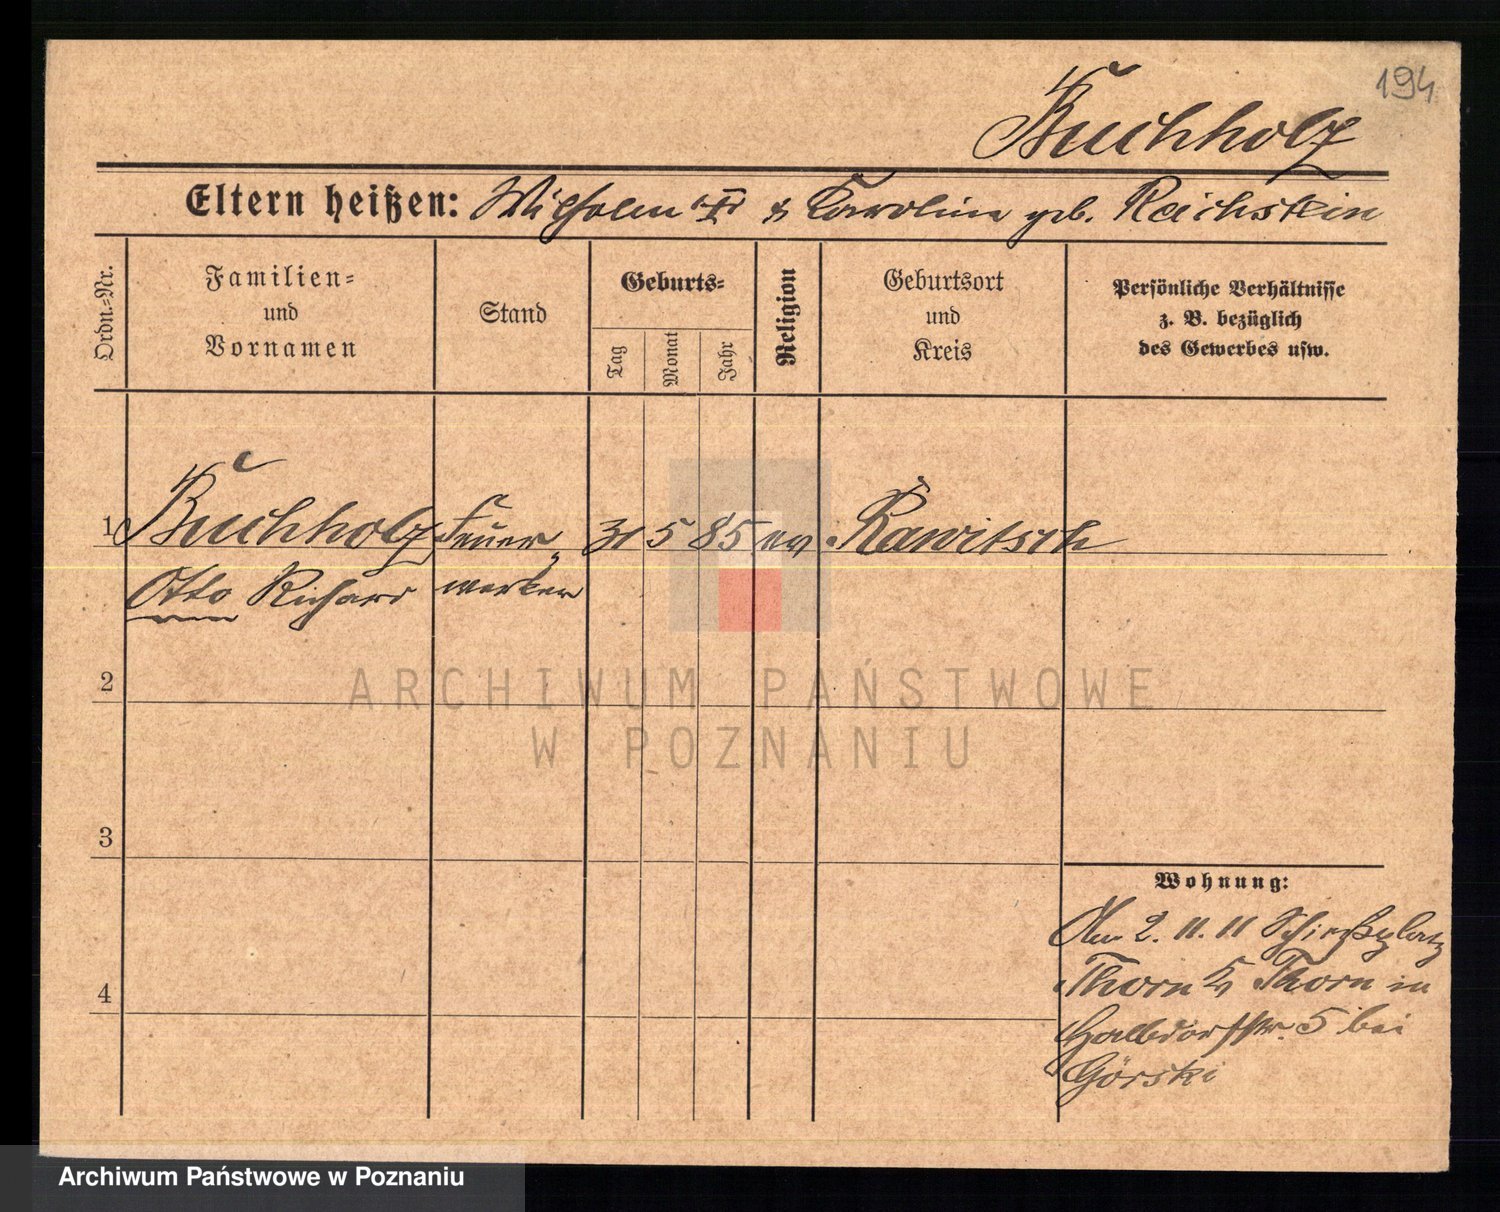 194
Buchholz
Eltern heißen: Wilhelm & Karoline geb. Reichstein
Ordn.-Nr.
Familien-
und
Vornamen
Stand
Geburts-
Tag
Monat
Jahr
Religion
Geburtsort
und
Kreis
Persönliche Verhältnisse
z. B. bezüglich
des Gewerbes usw.
1 Buchholz Feuer- 31 5 85 ev. Rawitsch
Otto Richard werker
2
3
4
Wohnung:
Am 2. 11. 11 Schießplatz
Thorn Thorn in
Halbdorfstr. 5 bei
Górski
ARCHIWUM PAŃSTWOWE
W POZNANIU
Archiwum Państwowe w Poznaniu